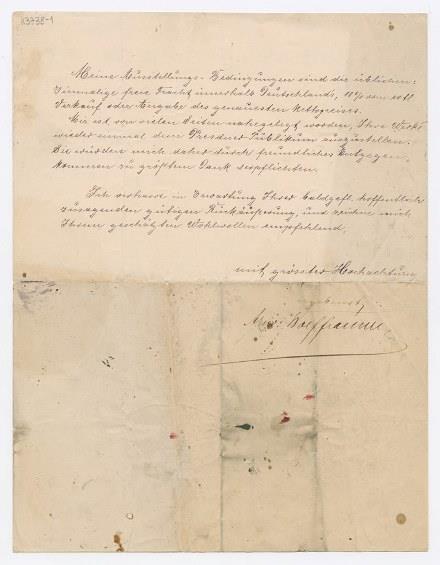 K3738-1
Meine Ausstellungs-Bedingungen sind die üblichen:
Einmalige freie Fracht innerhalb Deutschlands, 10% vom evtl
Verkauf oder Angabe des genauesten Nettopreises.
Mir ist von vielen Seiten nahegelegt worden, Ihre Werke
wieder einmal dem Dresdner Publikum
Sie würden mich daher durch freundliches Entgegen-
kommen zu größtem Dank verpflichten.
Ich verharre in Erwartung Ihrer baldgefl. hoffentlich
zusagenden gütigen Rückäußerung, und zeichne mich
Ihrem geschätzten Wohlwollen empfehlend,
mit grösster Hochachtung
ergebenst
Wolfframm